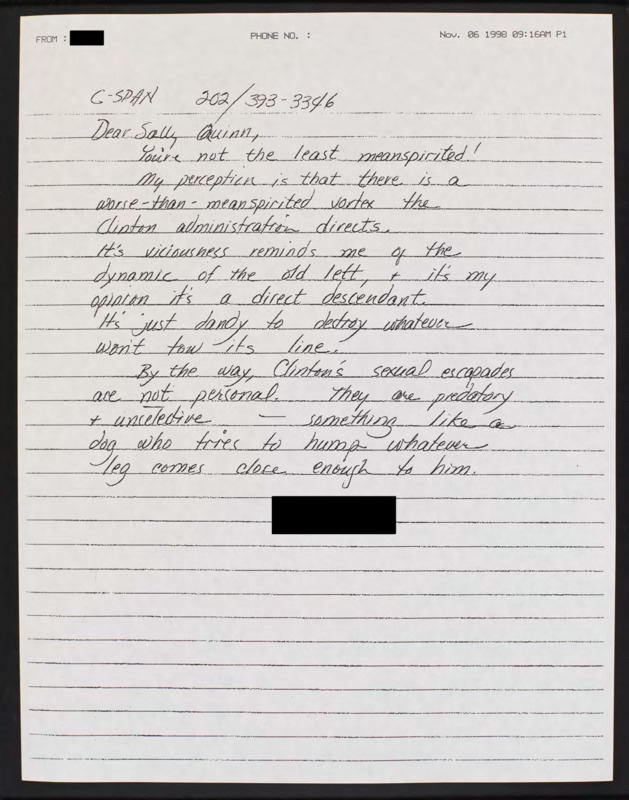 FROM :
PHONE NO. :
Nov. 06 1998 09:16AM P1
C-SPAN 202/393-3346
Dear Sally Quinn,
You're not the least meanspirited!
My perception is that there is a
worse-than-meanspirited vortex the
Clinton administration directs.
It's viciousness reminds me of the
dynamic of the old left, + it's my
opinion it's a direct descendant.
It's just dandy to destroy whatever
won't tow its line.
By the way, Clinton's sexual escapades
are not personal. They are predatory
+ unselective — something like a
dog who tries to hump whatever
leg comes close enough to him.